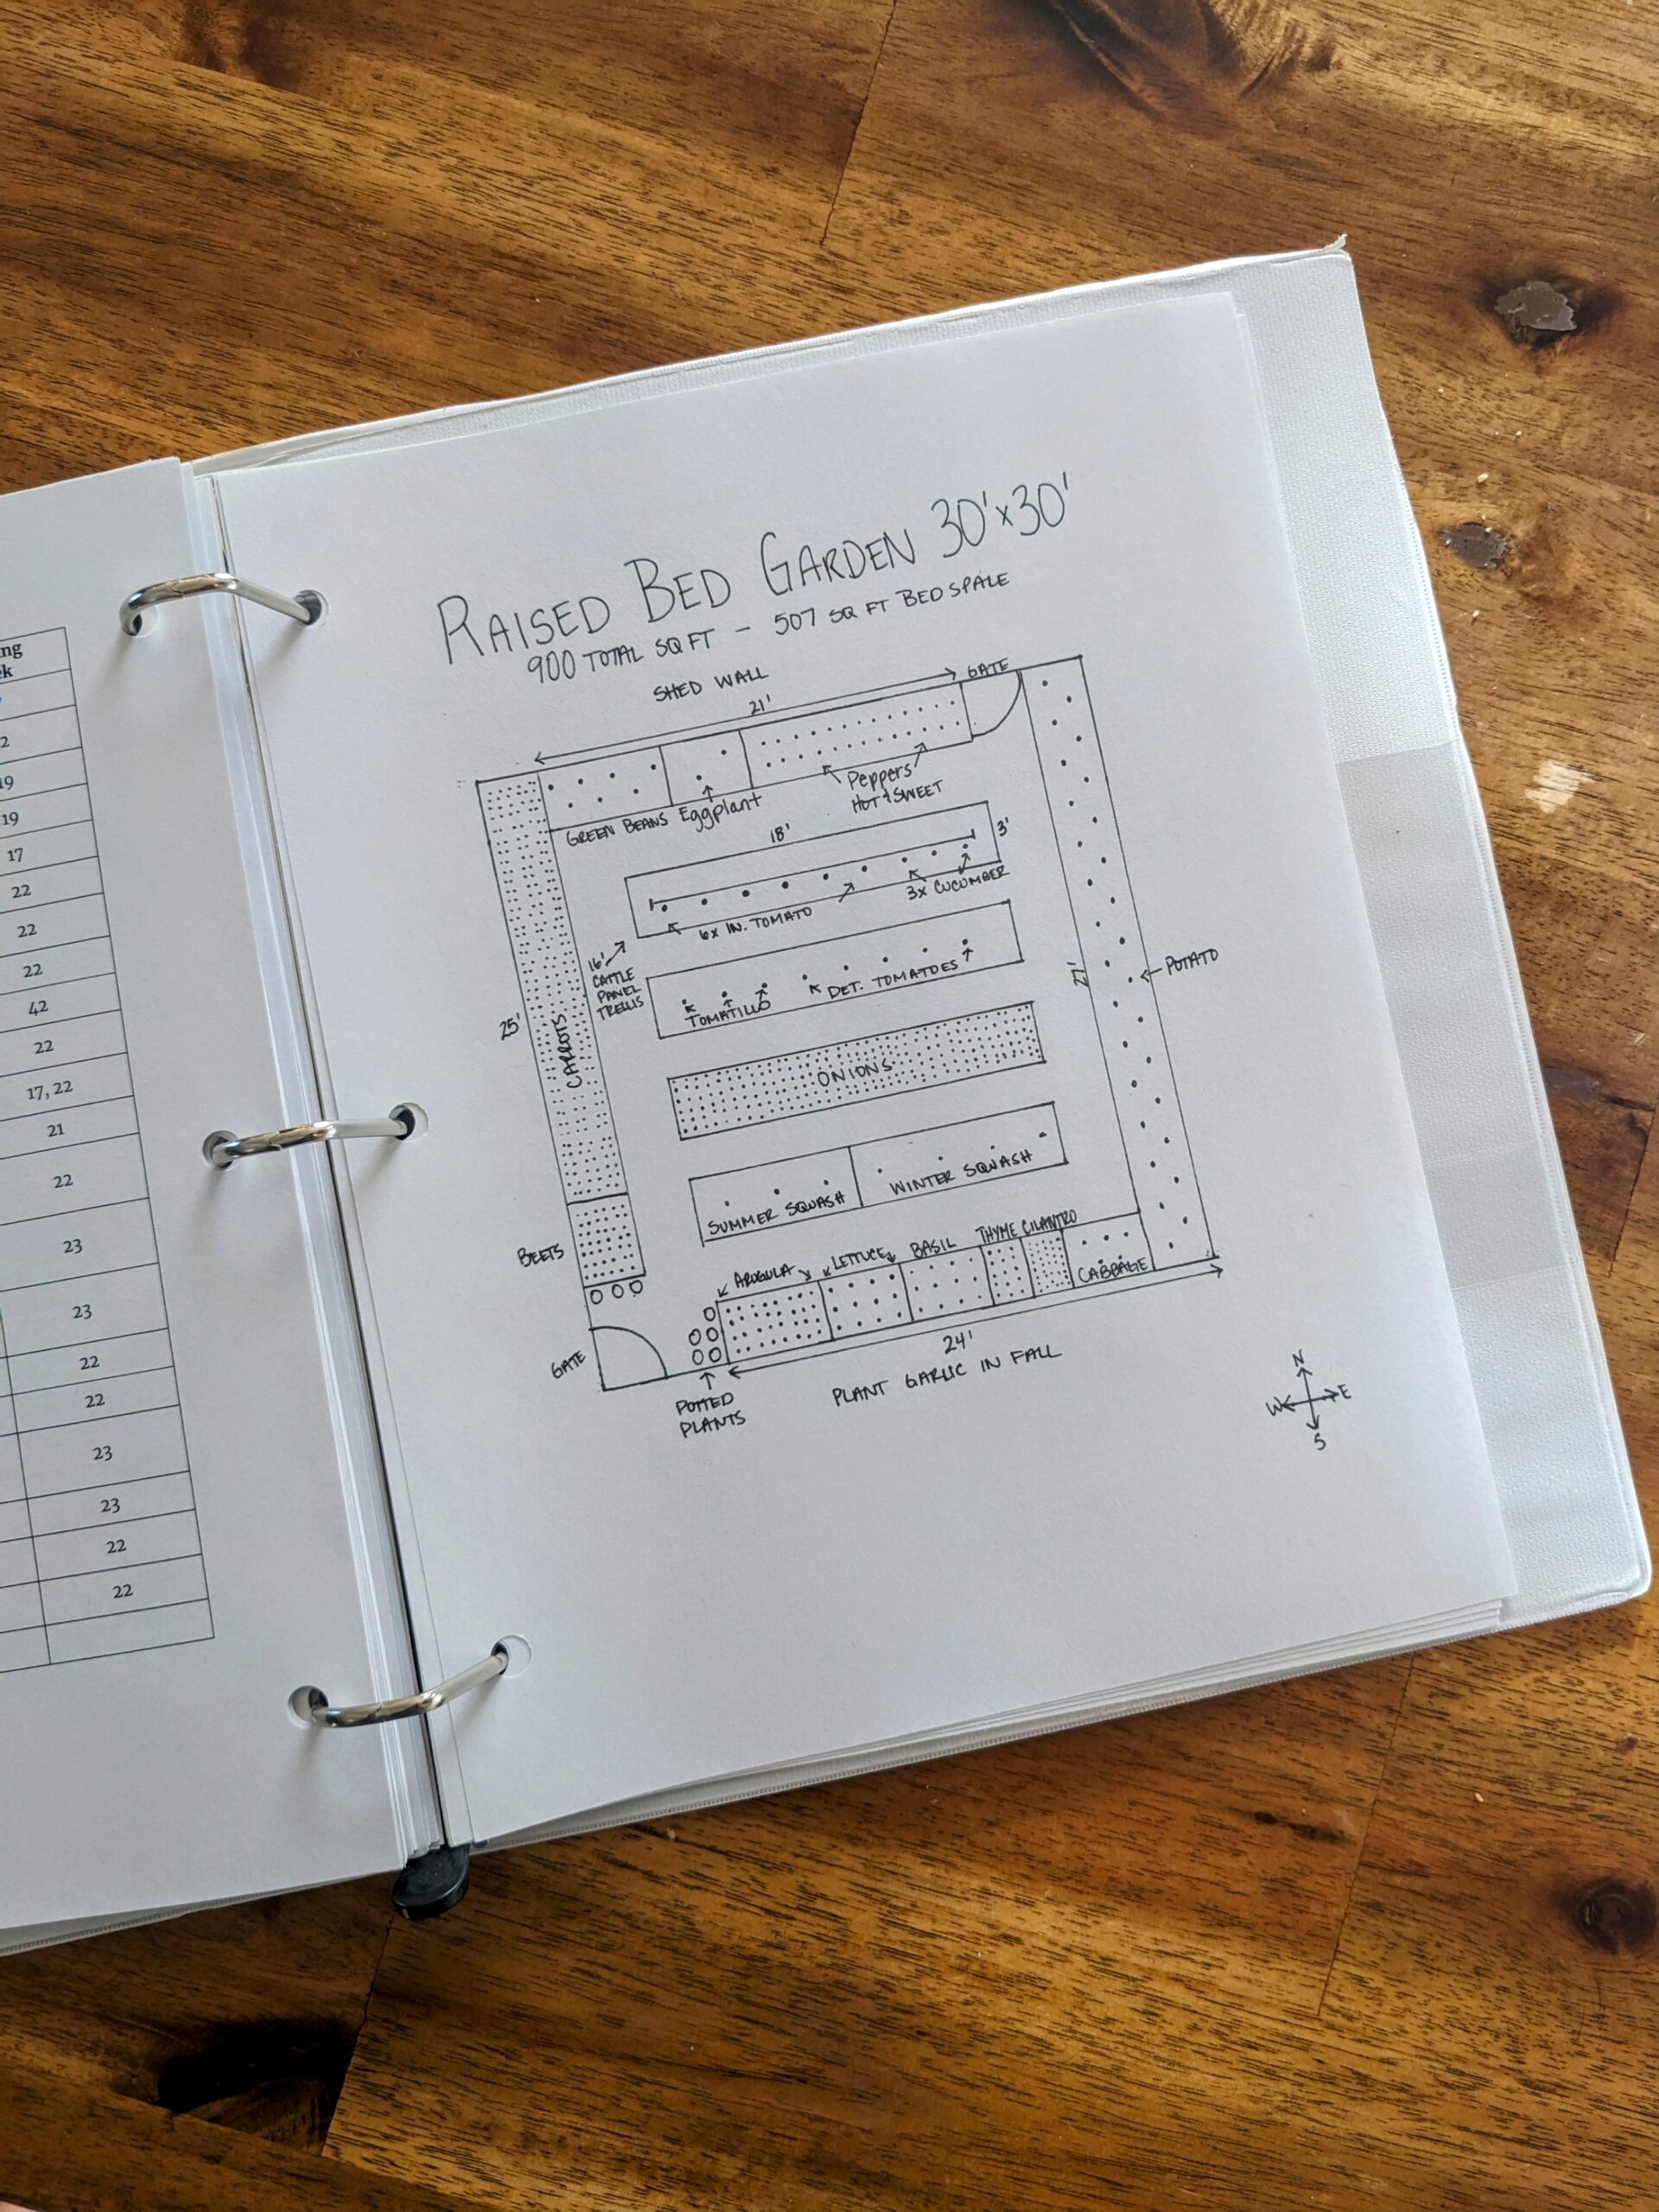 ng
k
2
19
19
17
22
22
22
42
22
17, 22
21
22
23
23
22
22
23
23
22
22
RAISED BED GARDEN 30'x30'
900 TOTAL SQ FT - 507 SQ FT BED SPALE
SHED WALL
21'
GATE
GREEN BEANS
Eggplant
Peppers
HOT & SWEET
18'
3'
6x IN. TOMATO
3x CUCUMBER
16'
CATTLE
PANEL
TRELLIS
TOMATILLO
DET. TOMATOES
25'
CARROTS
27'
POTATO
ONIONS
SUMMER SQUASH
WINTER SQUASH
BEETS
ARUGULA
LETTUCE
BASIL
THYME
CILANTRO
CABBAGE
GATE
24'
POTTED
PLANTS
PLANT GARLIC IN FALL
N
W
E
S